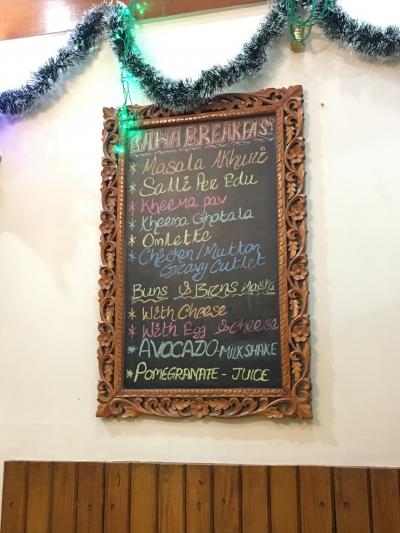 BAWA BREAKFAST
* Masala Akhuri
* Salli Per Edu
* Kheema pav
* Kheema Ghotala
* Omlette
* Chicken/Mutton
Gravy Cutlet
Buns & Bruns Maska
* With Cheese
* With Egg & Cheese
* AVOCADO-MILKSHAKE
* POMEGRANATE - JUICE